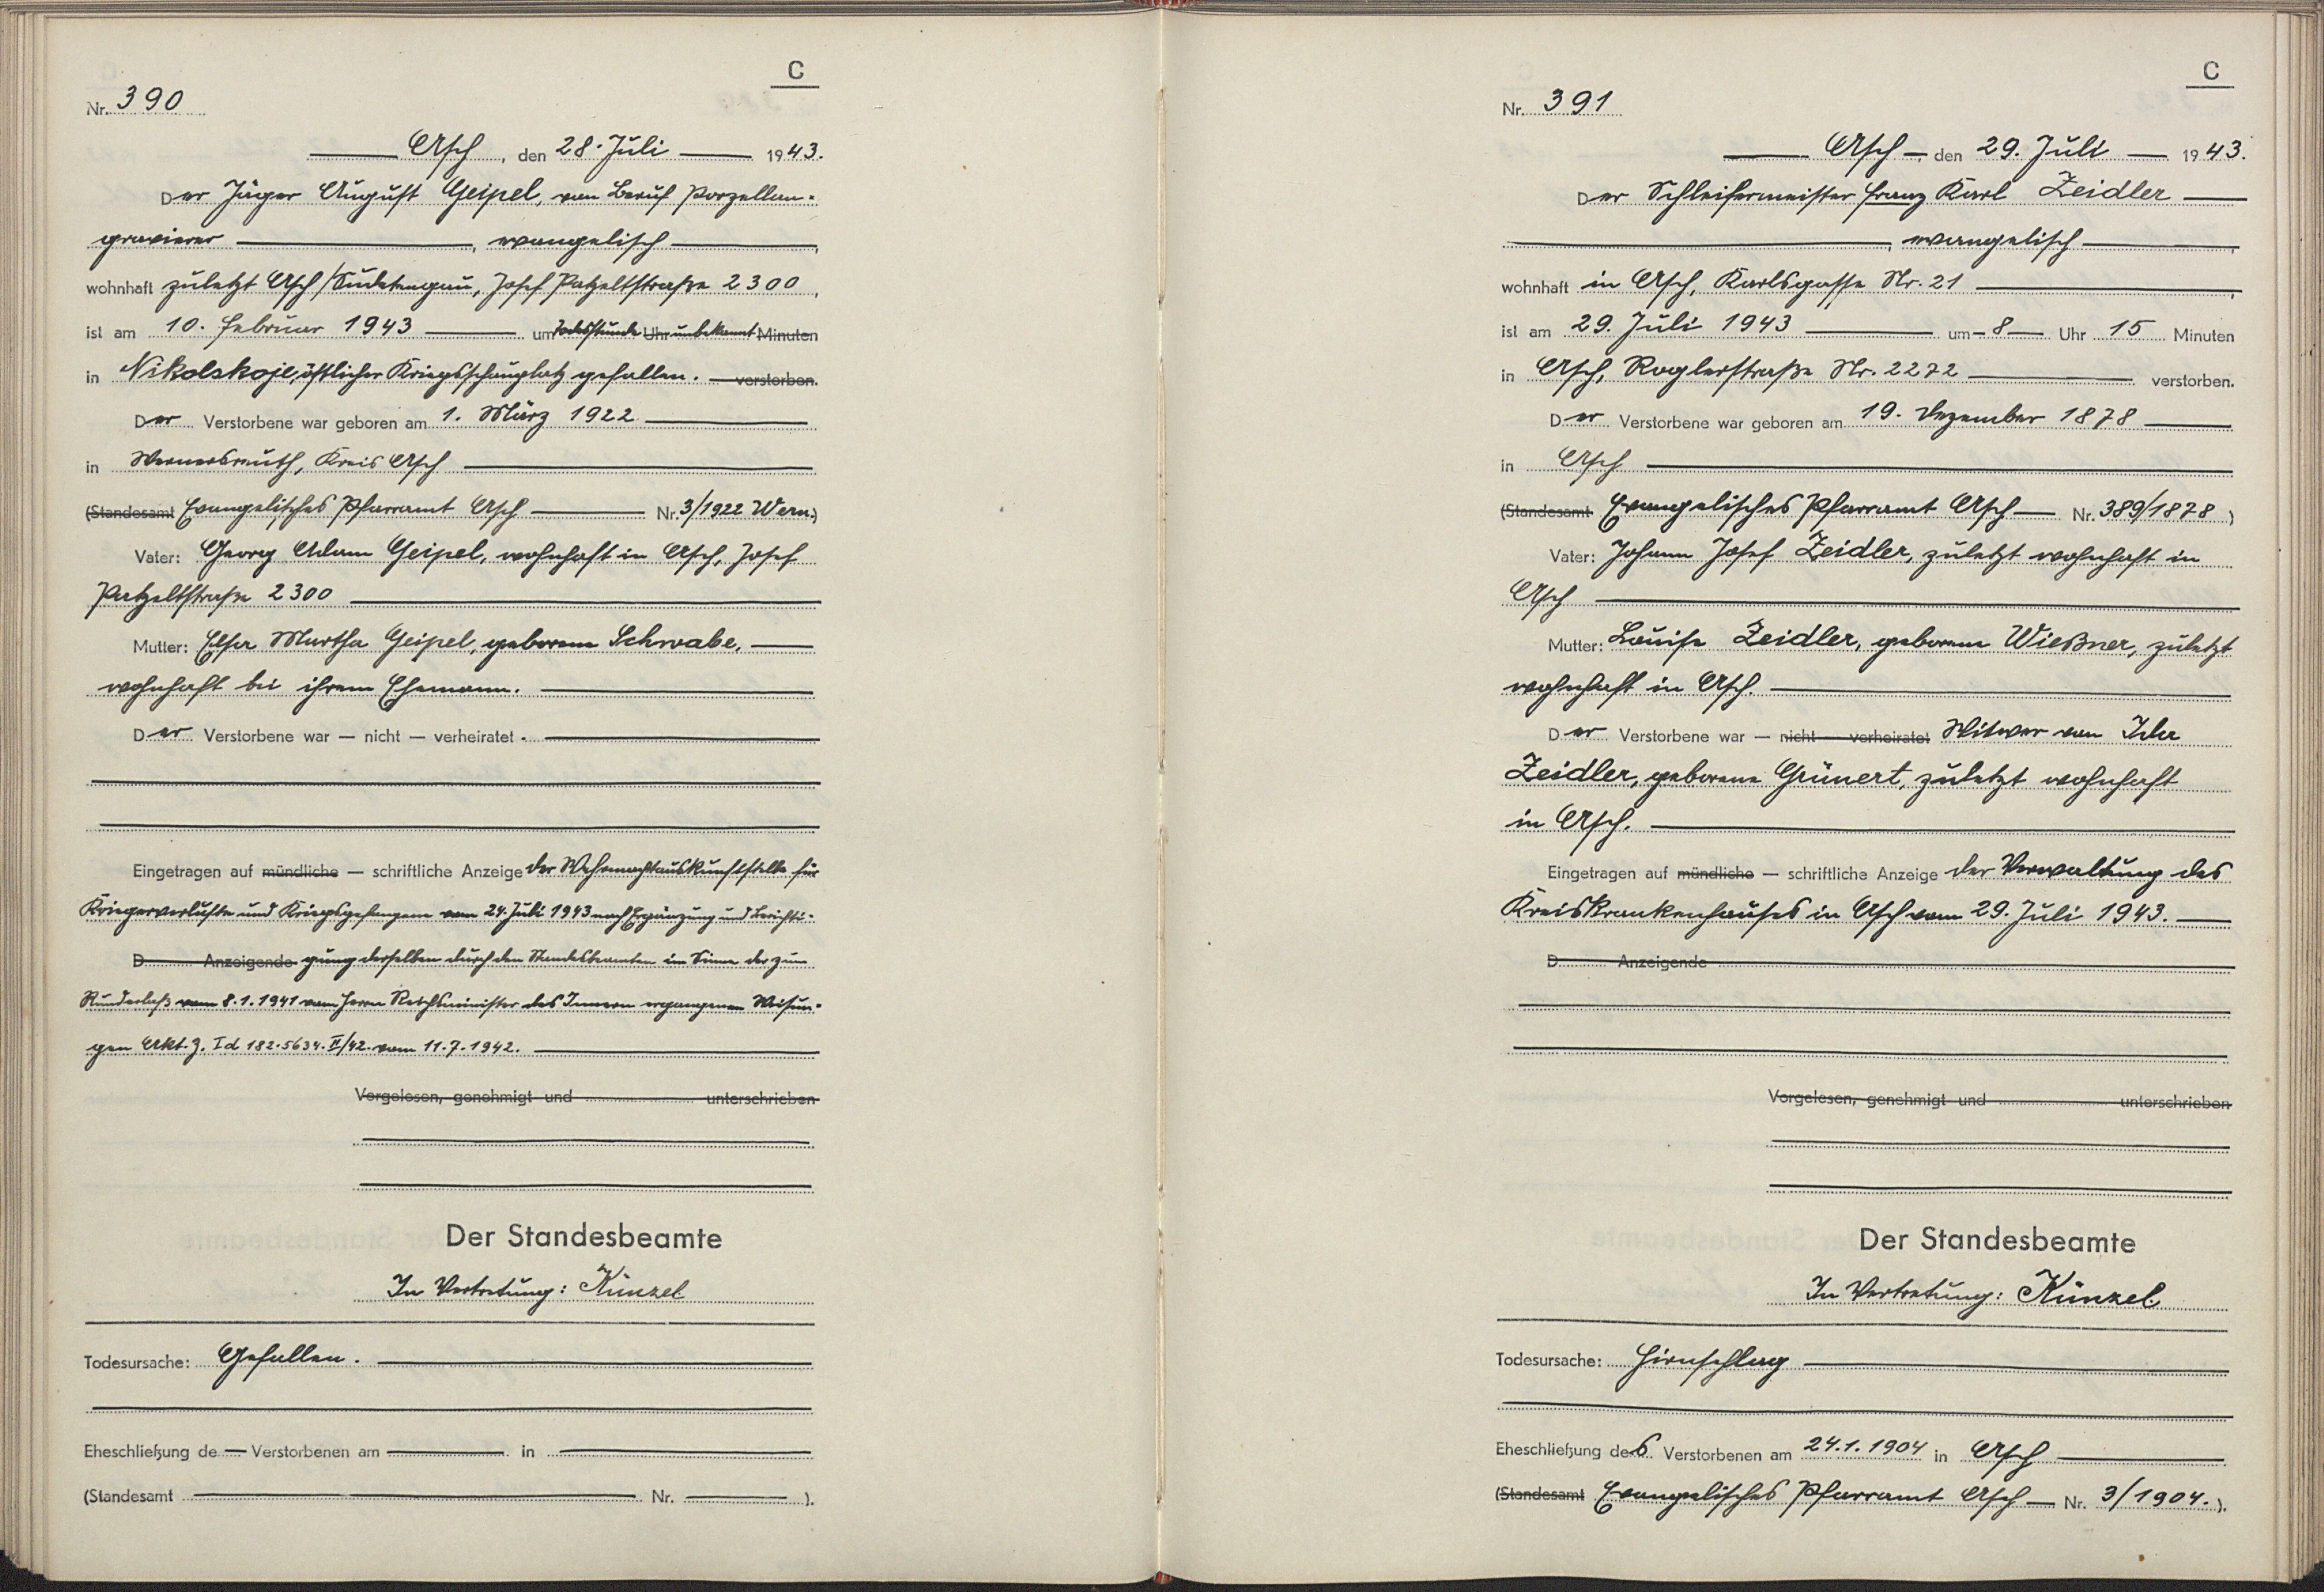 C
Nr. 390
Asch, den 28. Juli 1943.
Der Jäger August Geipel, von Beruf Porzellan-
gravierer, evangelisch,
wohnhaft zuletzt Asch/Sudetengau, Josef Patzeltstraße 2300,
ist am 10. Februar 1943 um Todesstunde Uhr unbekannt Minuten
in Nikolskoje, östlicher Kriegsschauplatz gefallen. verstorben.
Der Verstorbene war geboren am 1. März 1922
in Wernersreuth, Kreis Asch
(Standesamt Evangelisches Pfarramt Asch Nr. 3/1922 Wern.)
Vater: Georg Adam Geipel, wohnhaft in Asch, Josef
Patzeltstraße 2300
Mutter: Elsa Martha Geipel, geborene Schwabe,
wohnhaft bei ihrem Ehemann.
Der Verstorbene war — nicht — verheiratet.
Eingetragen auf mündliche — schriftliche Anzeige der Wehrmachtauskunftstelle für
Kriegerverluste und Kriegsgefangene vom 24. Juli 1943 nach Ergänzung und Berichti-
D Anzeigende gung derselben durch den Standesbeamten im Sinne der zum
Runderlaß vom 8.1.1941 vom Herrn Reichsminister des Innern ergangenen Weisun-
gen Akt.Z. Id 182.5634.II/42. vom 11.7.1942.
Vorgelesen, genehmigt und unterschrieben
Der Standesbeamte
In Vertretung: Künzel
Todesursache: Gefallen.
Eheschließung de Verstorbenen am in
(Standesamt Nr. ).
C
Nr. 391
Asch, den 29. Juli 1943.
Der Schleifermeister Franz Karl Zeidler
, evangelisch,
wohnhaft in Asch, Karlsgasse Nr. 21,
ist am 29. Juli 1943 um 8 Uhr 15 Minuten
in Asch, Roglerstraße Nr. 2272 verstorben.
Der Verstorbene war geboren am 19. Dezember 1878
in Asch
(Standesamt Evangelisches Pfarramt Asch Nr. 389/1878)
Vater: Johann Josef Zeidler, zuletzt wohnhaft in
Asch
Mutter: Louise Zeidler, geborene Wießner, zuletzt
wohnhaft in Asch.
Der Verstorbene war — nicht — verheiratet Witwer von Ida
Zeidler, geborene Grünert, zuletzt wohnhaft
in Asch.
Eingetragen auf mündliche — schriftliche Anzeige der Verwaltung des
Kreiskrankenhauses in Asch vom 29. Juli 1943.
D Anzeigende
Vorgelesen, genehmigt und unterschrieben
Der Standesbeamte
In Vertretung: Künzel
Todesursache: Hirnschlag
Eheschließung des Verstorbenen am 24.1.1904 in Asch
(Standesamt Evangelisches Pfarramt Asch Nr. 3/1904.).